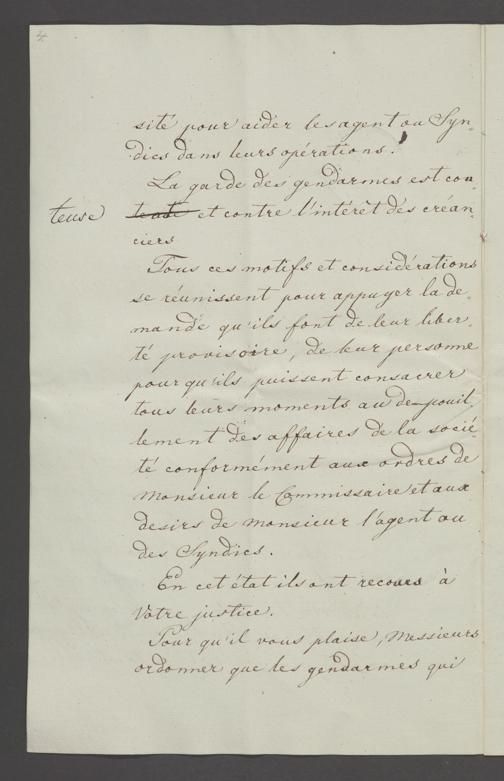 4
sité pour aider les agent ou Syn-
dics dans leurs opérations.
La garde des gendarmes est cou-
teuse et contre l'intérêt des créan-
ciers
Tous ces motifs et considérations
se réunissent pour appuyer la de-
mande qu'ils font de leur liber-
té provisoire, de leur personne
pour qu'ils puissent consacrer
tous leurs moments au depouil-
lement des affaires de la socié-
té conformément aux ordres de
Monsieur le Commissaire et aux
desirs de Monsieur l'agent ou
des Syndics.
En cet état ils ont recours à
Votre justice.
Pour qu'il vous plaise, Messieurs
ordonner que les gendarmes qui